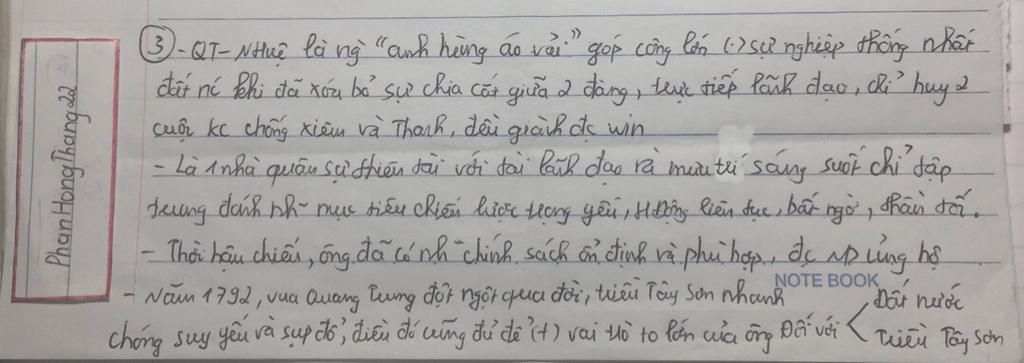 PhanHongThang22
③ - QT - NHuệ là ng` "anh hùng áo vải" góp công lớn (.) sự nghiệp thống nhất
đất nc khi đã xóa bỏ sự chia cắt giữa 2 đàng, trực tiếp lãnh đạo, chỉ huy 2
cuộc kc chống xiêm và Thanh, đều giành đc win
- Là 1 nhà quân sự thiên tài với tài lãnh đạo và mưu trí sáng suốt chỉ tập
trung đánh nh~ mục tiêu chiến lược trọng yếu, Hđộng liên tục, bất ngờ, thần tốc.
- Thời hậu chiến, ông đã có nh~ chính sách ổn định và phù hợp, đc ND ủng hộ
NOTE BOOK
- Năm 1792, vua Quang Trung đột ngột qua đời, triều Tây Sơn nhanh
chóng suy yếu và sụp đổ, điều đó cũng đủ để (+) vai trò to lớn của ông Đối với
Đất nước
Triều Tây Sơn